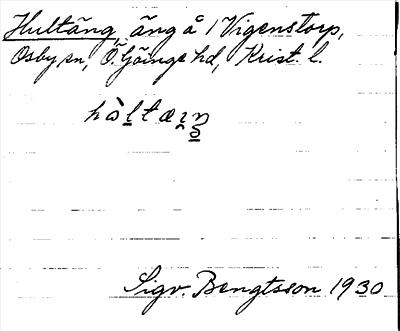 Hultäng, äng å 1 Vigenstorp,
Osby sn, Ö. Göinge hd, Krist. l.
Sigv. Bengtsson 1930